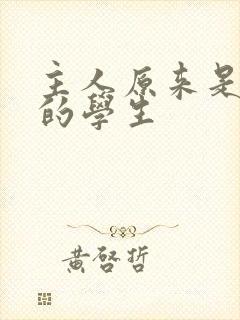 主人原来是
的學生
黃啓哲